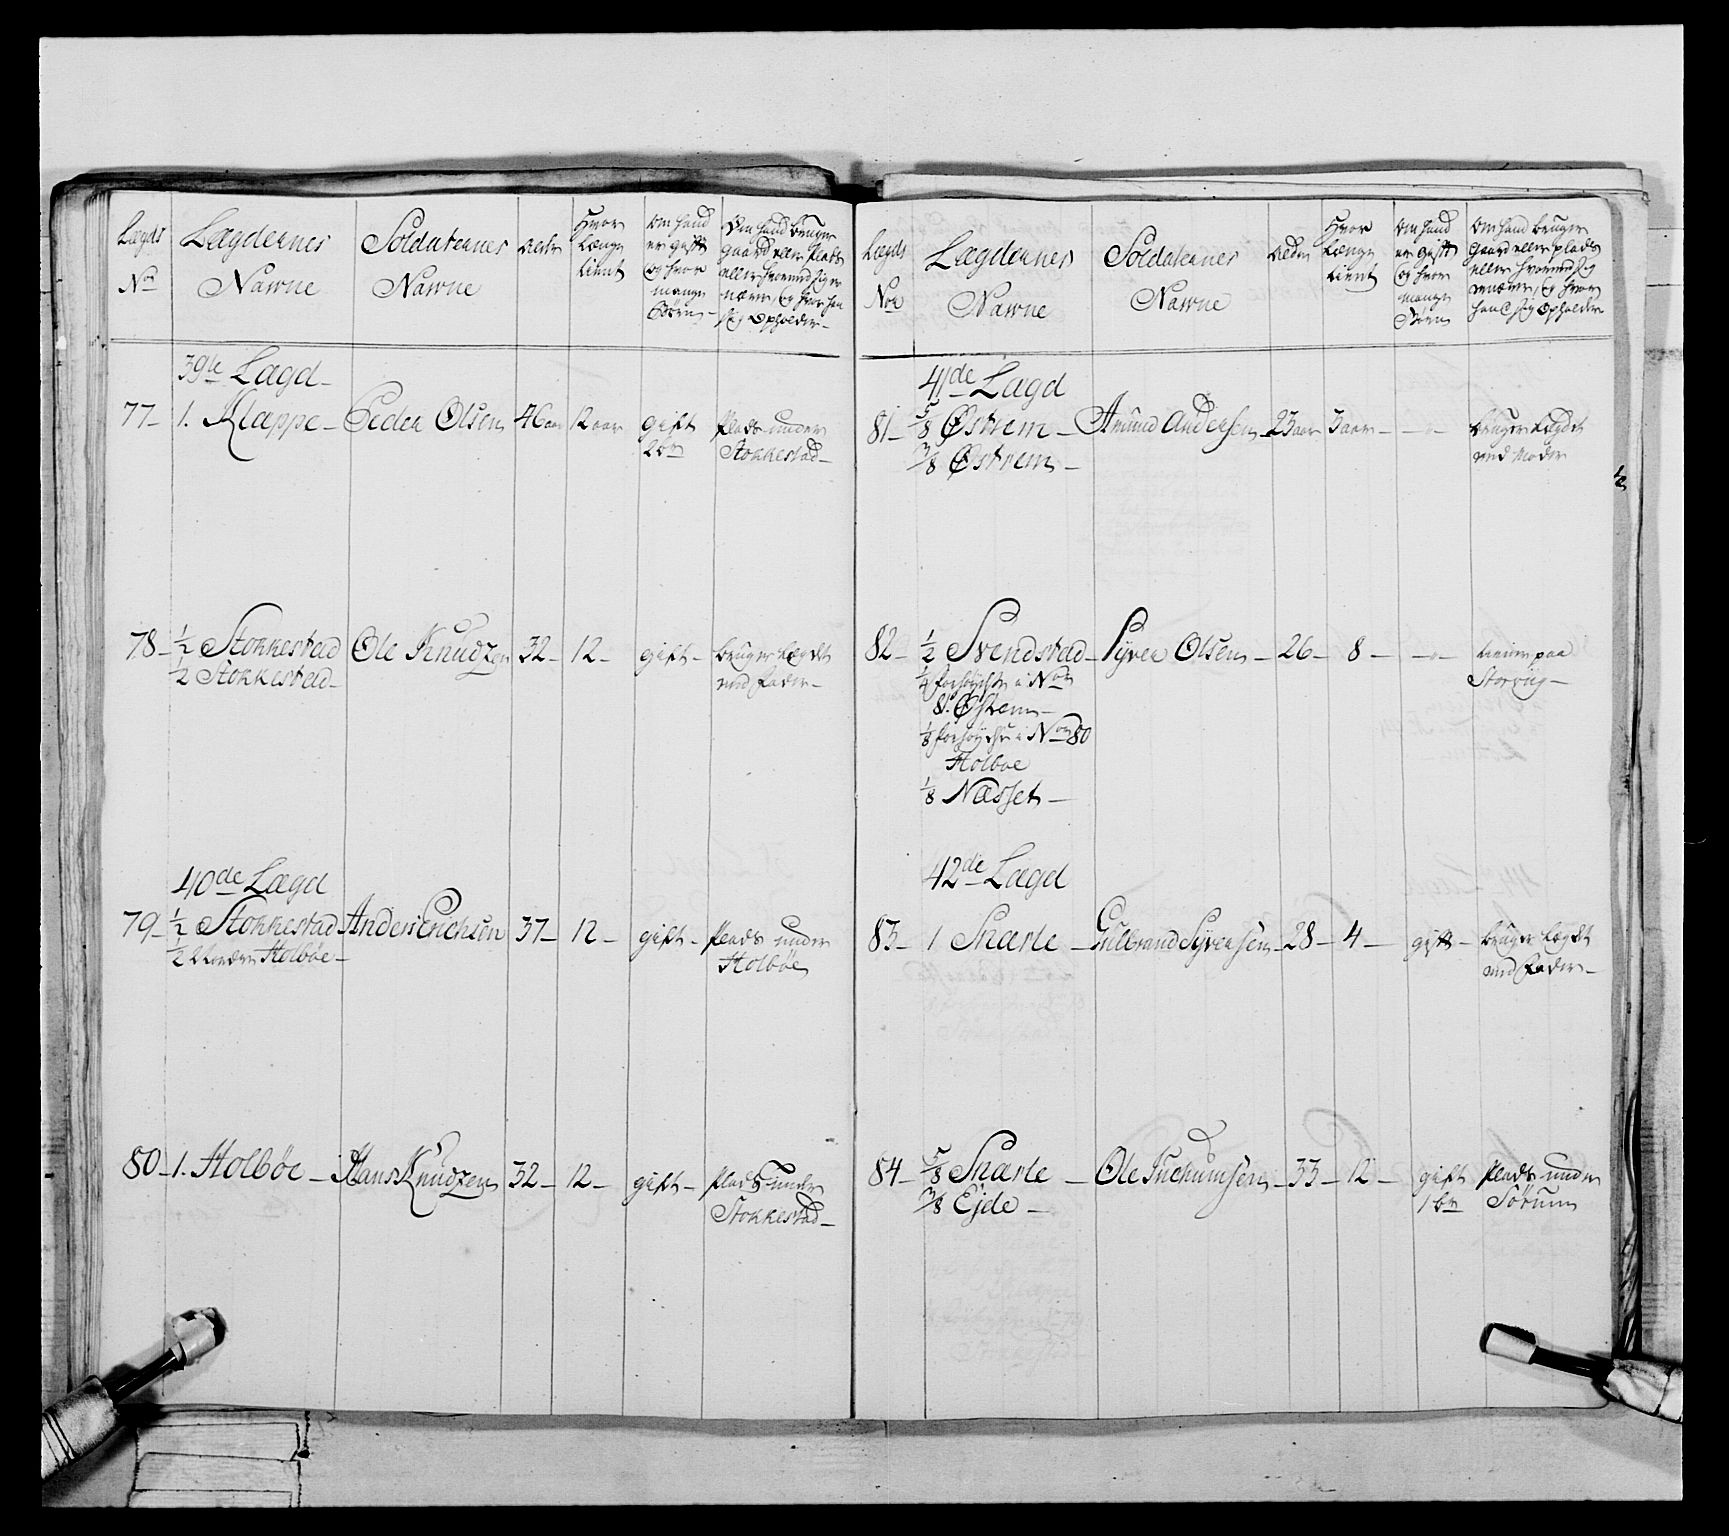 Lægds No
Lægdernes Nawne
Soldaternes Nawne
Alder
Hvor Længe tient
Om hand er gift Og hvor mange Børn
Om hand bruger gaard eller Plads eller hvormed sig ernærer, Og hvor han sig Opholder
39te Lægd
77 1. Klæppe Peder Olsen 46 aar 12 aar gift 2 bn Plads under
Stokkestad
78 1/2 Stokkestad Ole Knudzen 32 12 gift bruger Lægdet
1/2 Stokkestad med Fader
40de Lægd
79 1/2 Stokkestad Anders Erichsen 37 12 gift Plads under
1/2 Holbøe Holbøe
80 1. Holbøe Hans Knudzen 32 12 gift Plads under
Stokkestad
Lægds No
Lægdernes Nawne
Soldaternes Nawne
Alder
Hvor Længe tient
Om hand er gift Og hvor mange Børn
Om hand bruger Gaard eller plads eller hvormed sig ernærer, Og hvor hand sig Opholder
41de Lægd
81 5/8 Østrem Amund Andersen 23 aar 3 aar bruger Lægdet
3/8 Østrem med Moder
82 1/2 Svendstad Syver Olsen 26 8 tiener paa
1/4 i No Storviig
81. Østrem
1/8 i No 80
Holboe
1/8 Næsset
42de Lægd
83 1 Snarte Gulbrand Syversen 28 4 gift bruger Lægdet
med Fader
84 5/8 Snarte Ole 33 12 gift Plads under
3/8 Ejde 1 bn Sörum